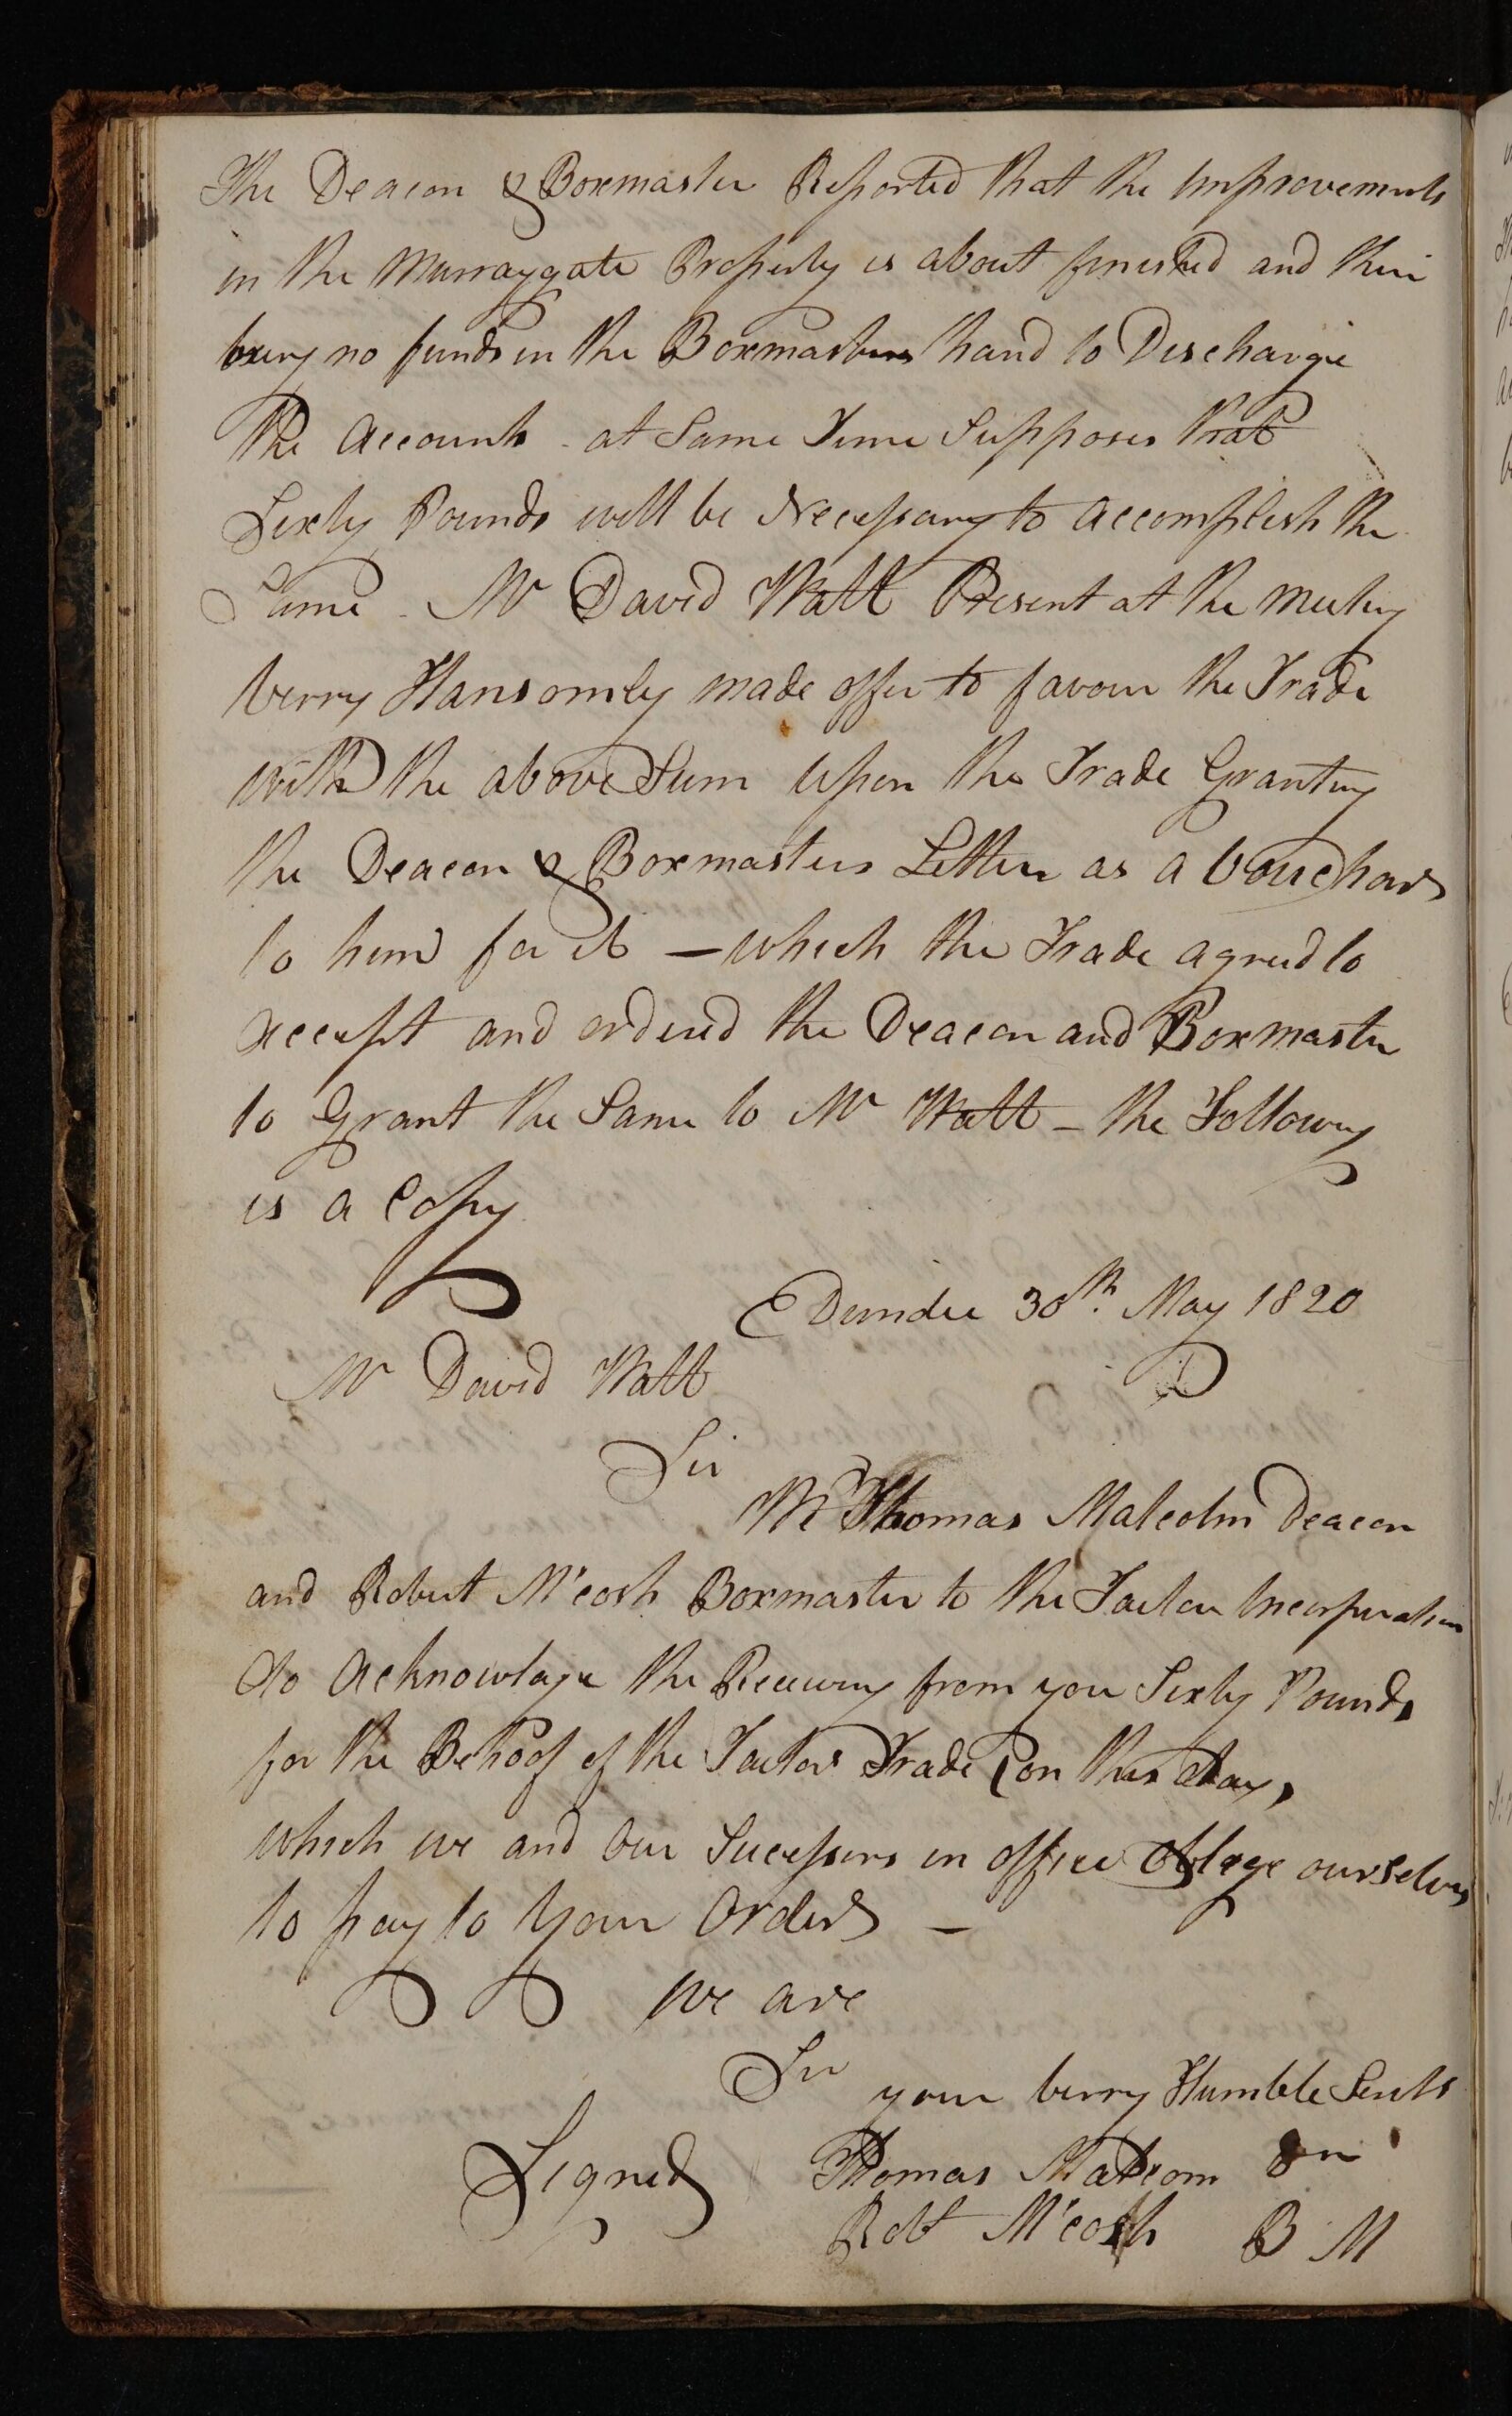 The Deacon & Boxmaster Reported that the Improvements
in the Murraygate Property is about finished and their
being no funds in the Boxmasters hand to Discharge
the Accounts - at Same Time Supposes that
Sixty Pounds will be Necessary to accomplish the
Same - Mr David Watt Present at the meeting
verry Hansomly made offer to favour the Trade
with the above Sum Upon the Trade Granting
the Deacon & Boxmasters Letter as a Vouchar
to him for it — which the Trade agreed to
accept and ordered the Deacon and Boxmaster
to Grant the Same to Mr Watt - the Following
is a Copy
Dundee 30th. May 1820
Mr David Watt
Sir
We Thomas Malcolm Deacon
and Robert M'cosh Boxmaster to the Tailor Incorporation
do acknowlage the Receiving from you Sixty Pounds
for the Behoof of the Tailor Trade on this day,
which we and our Sucessors in office oblege ourselves
to pay to your Orders —
we are
Sir
your verry Humble Servts
Signed Thomas Malcom Dn
Robt M'cosh B M